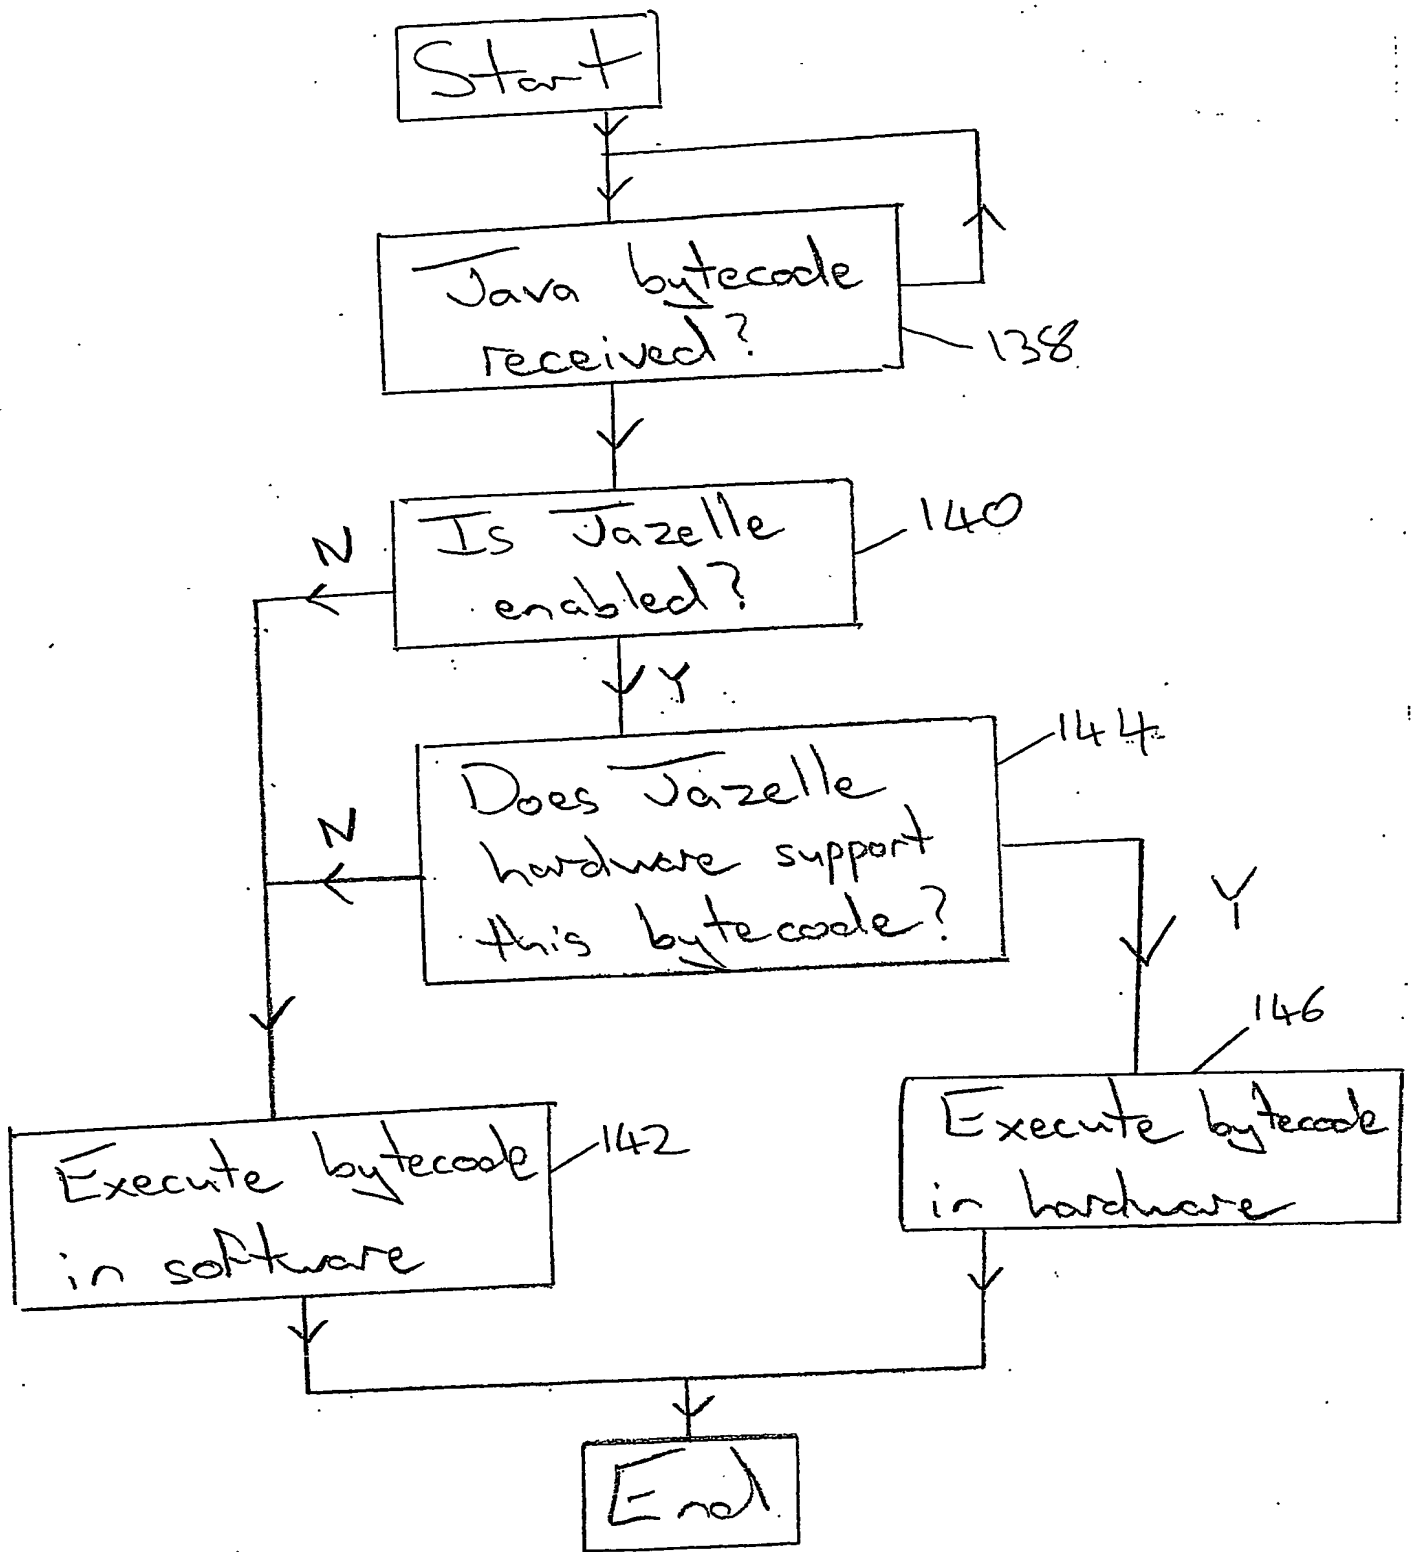 Start
Java bytecode
received?
138
Is Jazelle
enabled?
140
N
Y
Does Jazelle
hardware support
this bytecode?
144
N
Y
146
Execute bytecode
in software
142
Execute bytecode
in hardware
End